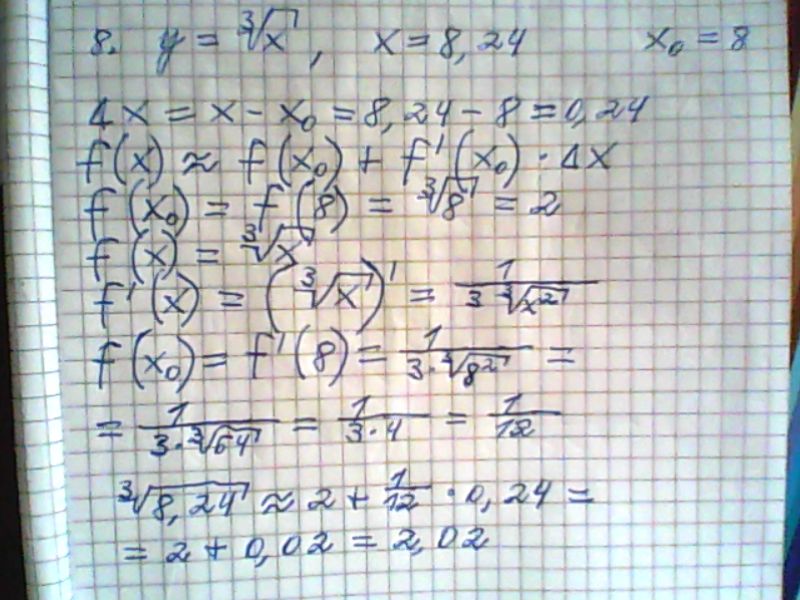 8. y = ∛x, x = 8,24 x₀ = 8
Δx = x - x₀ = 8,24 - 8 = 0,24
f(x) ≈ f(x₀) + f'(x₀) · Δx
f(x₀) = f(8) = ∛8 = 2
f(x) = ∛x
f'(x) = (∛x)' = 1/(3∛x²)
f(x₀) = f'(8) = 1/(3·∛8²) =
= 1/(3·∛64) = 1/(3·4) = 1/12
∛8,24 ≈ 2 + 1/12 · 0,24 =
= 2 + 0,02 = 2,02